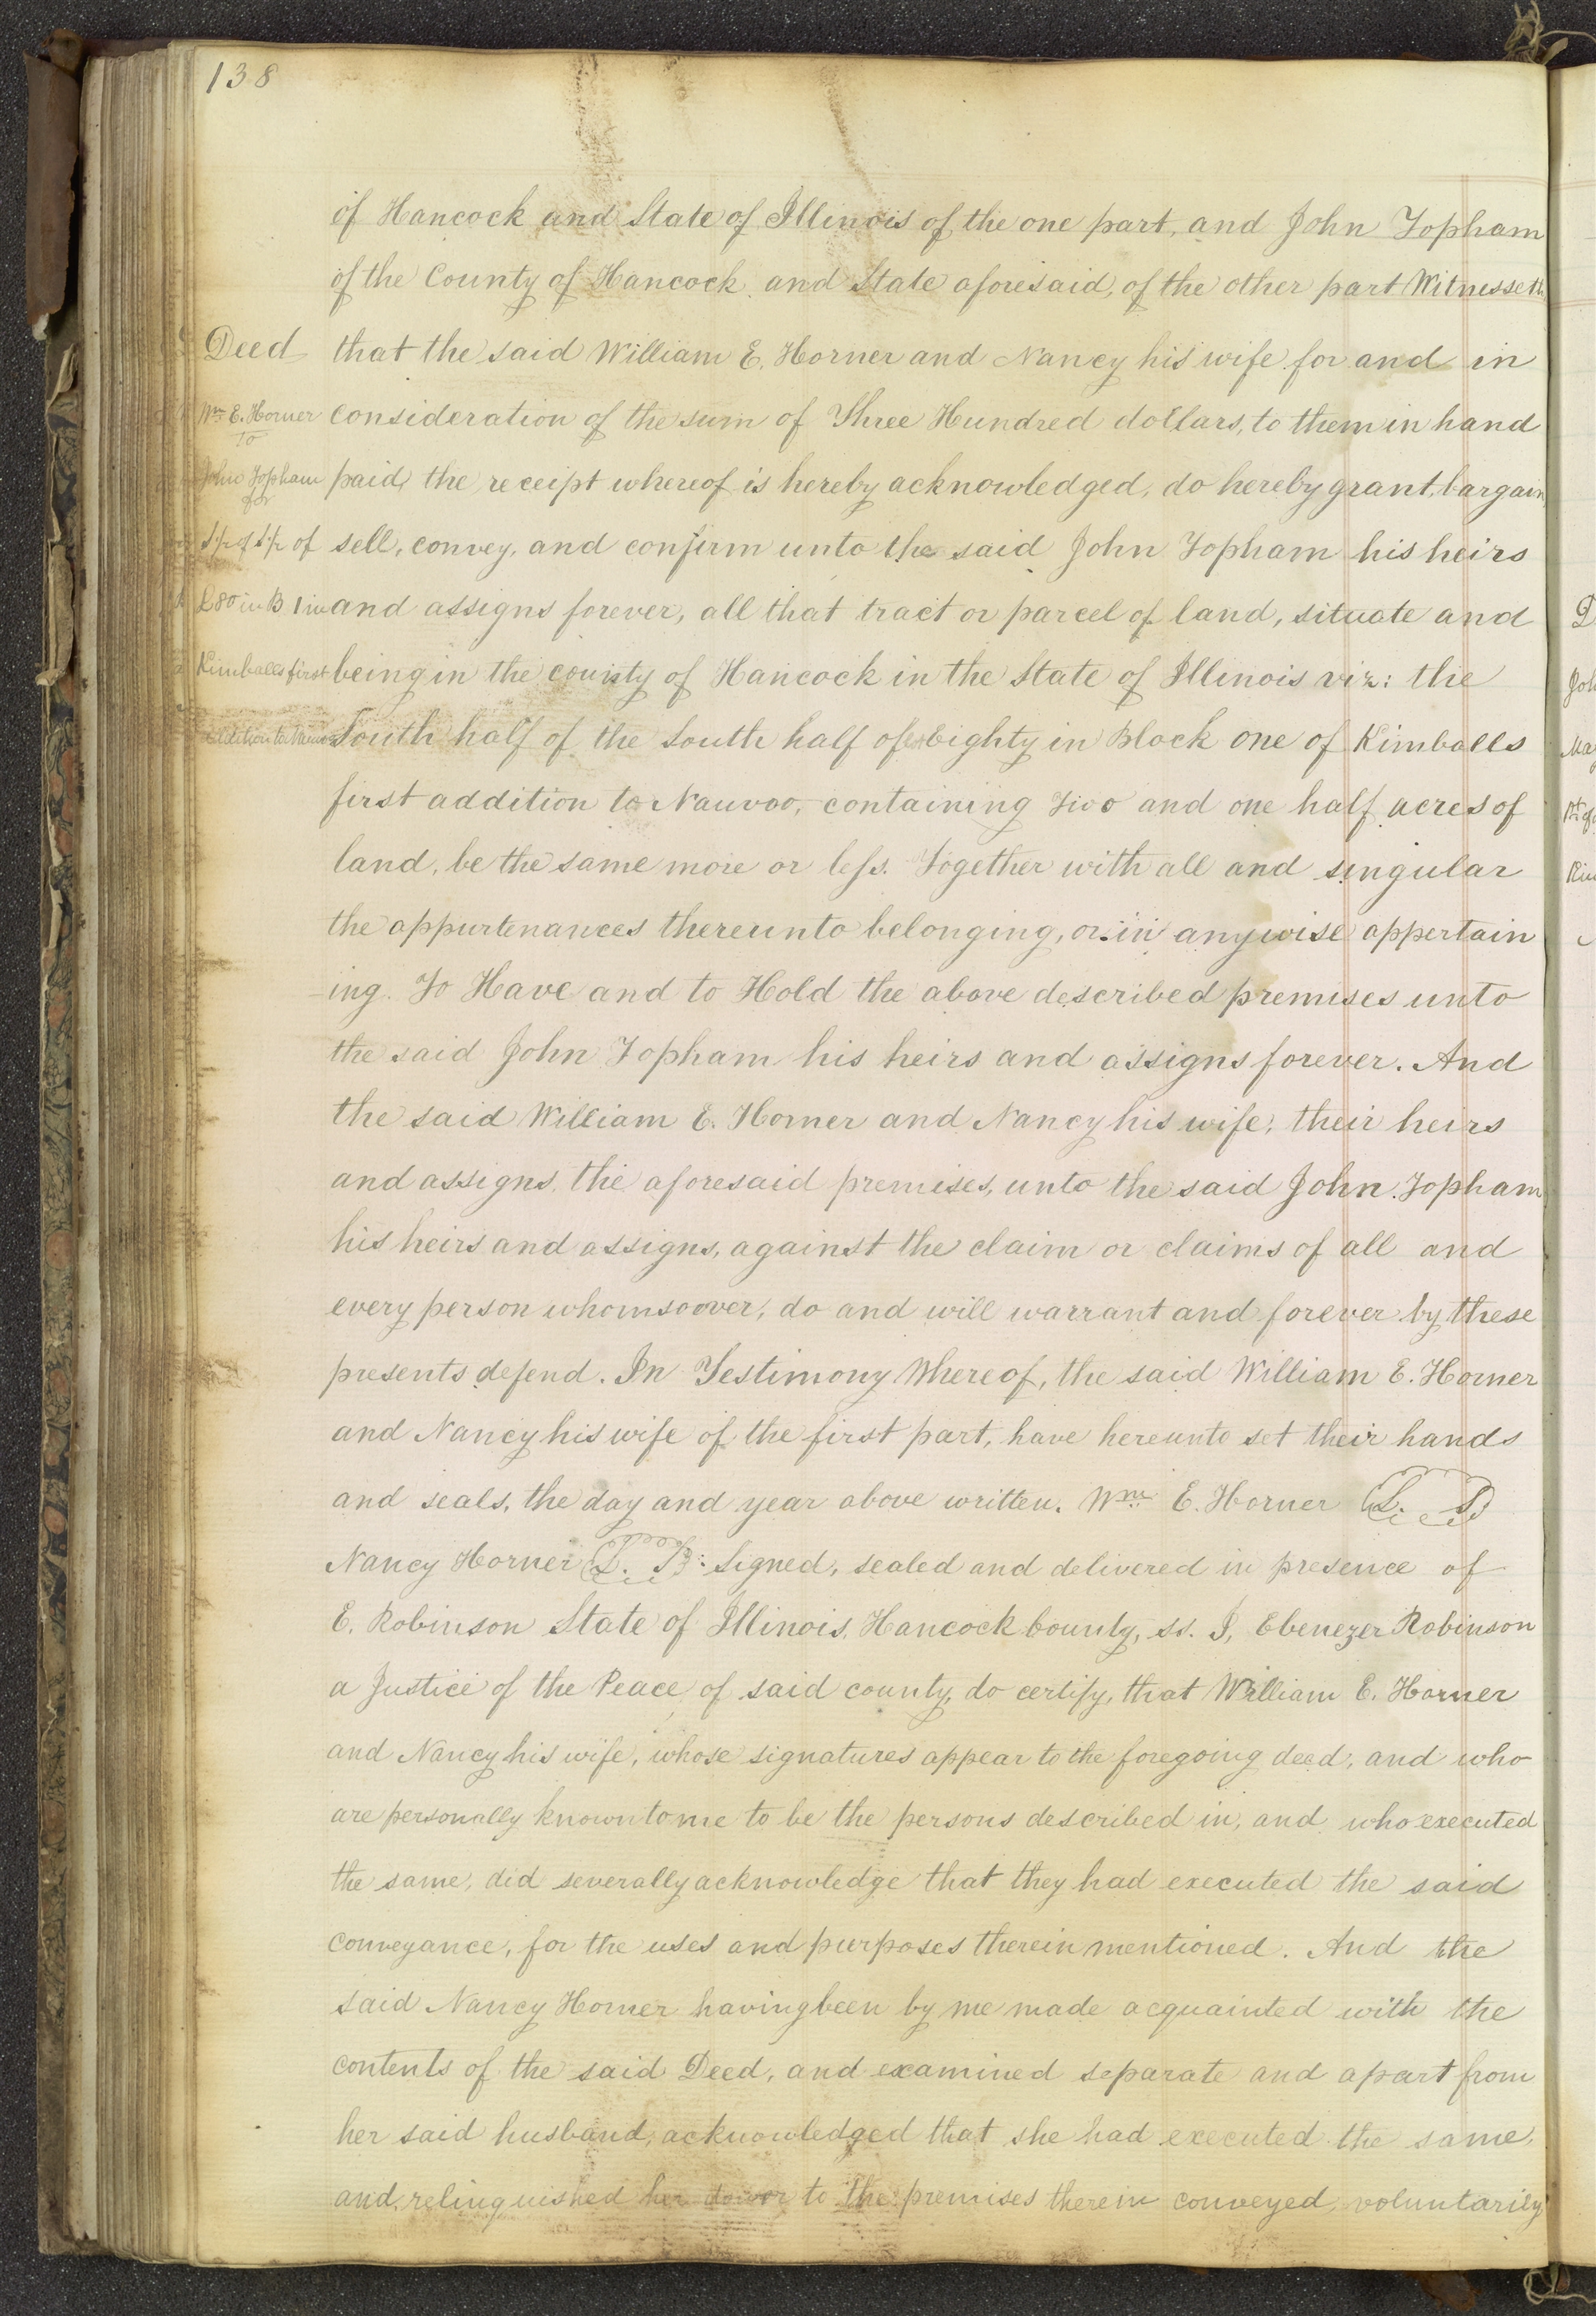 138
of Hancock and State of Illinois of the one part, and John Topham
of the County of Hancock and State aforesaid, of the other part Witnesseth
Deed
that the said William E. Horner and Nancy his wife for and in
Wm E. Horner
To
consideration of the sum of Three Hundred dollars, to them in hand
John Topham
for
paid, the receipt whereof is hereby acknowledged, do hereby grant, bargain
S½ of S½ of
sell, convey, and confirm unto the said John Topham his heirs
L 80 in B 1 in
and assigns forever, all that tract or parcel of land, situate and
Kimballs first
being in the county of Hancock in the State of Illinois viz: the
addition to Nauvoo
South half of the South half of Lot Eighty in Block one of Kimballs
first addition to Nauvoo, containing Two and one half acres of
land, be the same more or less. Together with all and singular
the appurtenances thereunto belonging, or in anywise appertain
-ing. To Have and to Hold the above described premises unto
the said John Topham his heirs and assigns forever. And
the said William E. Horner and Nancy his wife, their heirs
and assigns, the aforesaid premises, unto the said John Topham
his heirs and assigns, against the claim or claims of all and
every person whomsoover, do and will warrant and forever by these
presents defend. In Testimony Whereof, the said William E. Horner
and Nancy his wife of the first part, have hereunto set their hands
and seals, the day and year above written. Wm E. Horner L. S
Nancy Horner L. S Signed, sealed and delivered in presence of
E. Robinson State of Illinois, Hancock County, ss. I, Ebenezer Robinson
a Justice of the Peace of said county, do certify, that William E. Horner
and Nancy his wife, whose signatures appear to the foregoing deed, and who
are personally known to me to be the persons described in, and who executed
the same, did severally acknowledge that they had executed the said
conveyance, for the uses and purposes therein mentioned. And the
said Nancy Horner having been by me made acquainted with the
contents of the said Deed, and examined separate and apart from
her said husband, acknowledged that she had executed the same,
and relinquished her dower to the premises therein conveyed, voluntarily